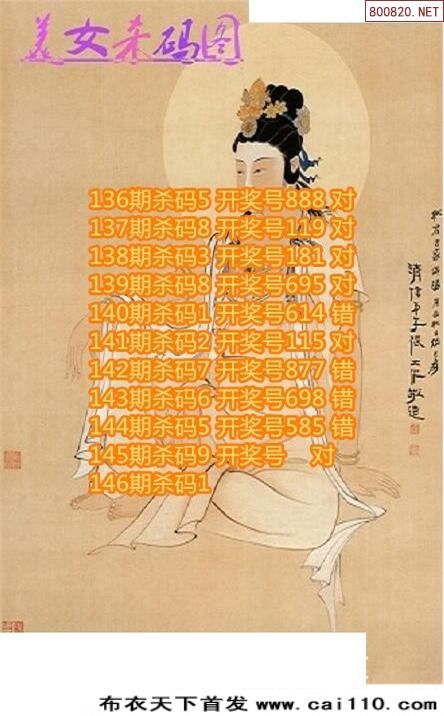 800820.NET
美女杀码图
136期杀码5 开奖号888 对
137期杀码8 开奖号119 对
138期杀码3 开奖号181 对
139期杀码8 开奖号695 对
140期杀码1 开奖号614 错
141期杀码2 开奖号115 对
142期杀码7 开奖号877 错
143期杀码6 开奖号698 错
144期杀码5 开奖号585 错
145期杀码9 开奖号 对
146期杀码1
布衣天下首发 www.cai110.com